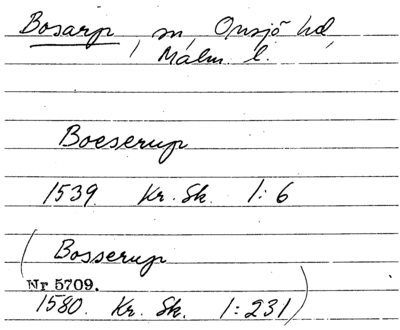 Bosarp, sn, Onsjö hd,
Malm. l.
Boeserup
1539 Kr. Sk. 1:6
(Bosserup
Nr 5709.
1580. Kr. Sk. 1:231)